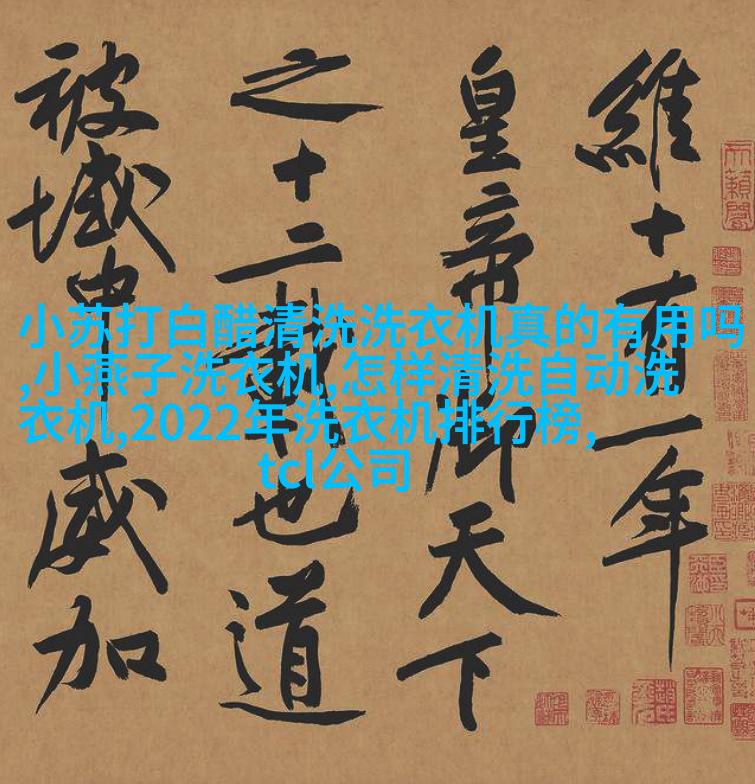 維十有一年
皇帝御天下
之十二載也道
被域中威加
小苏打白醋清洗洗衣机真的有用吗
,小燕子洗衣机,怎样清洗自动洗
衣机,2022年洗衣机排行榜,
tcl公司